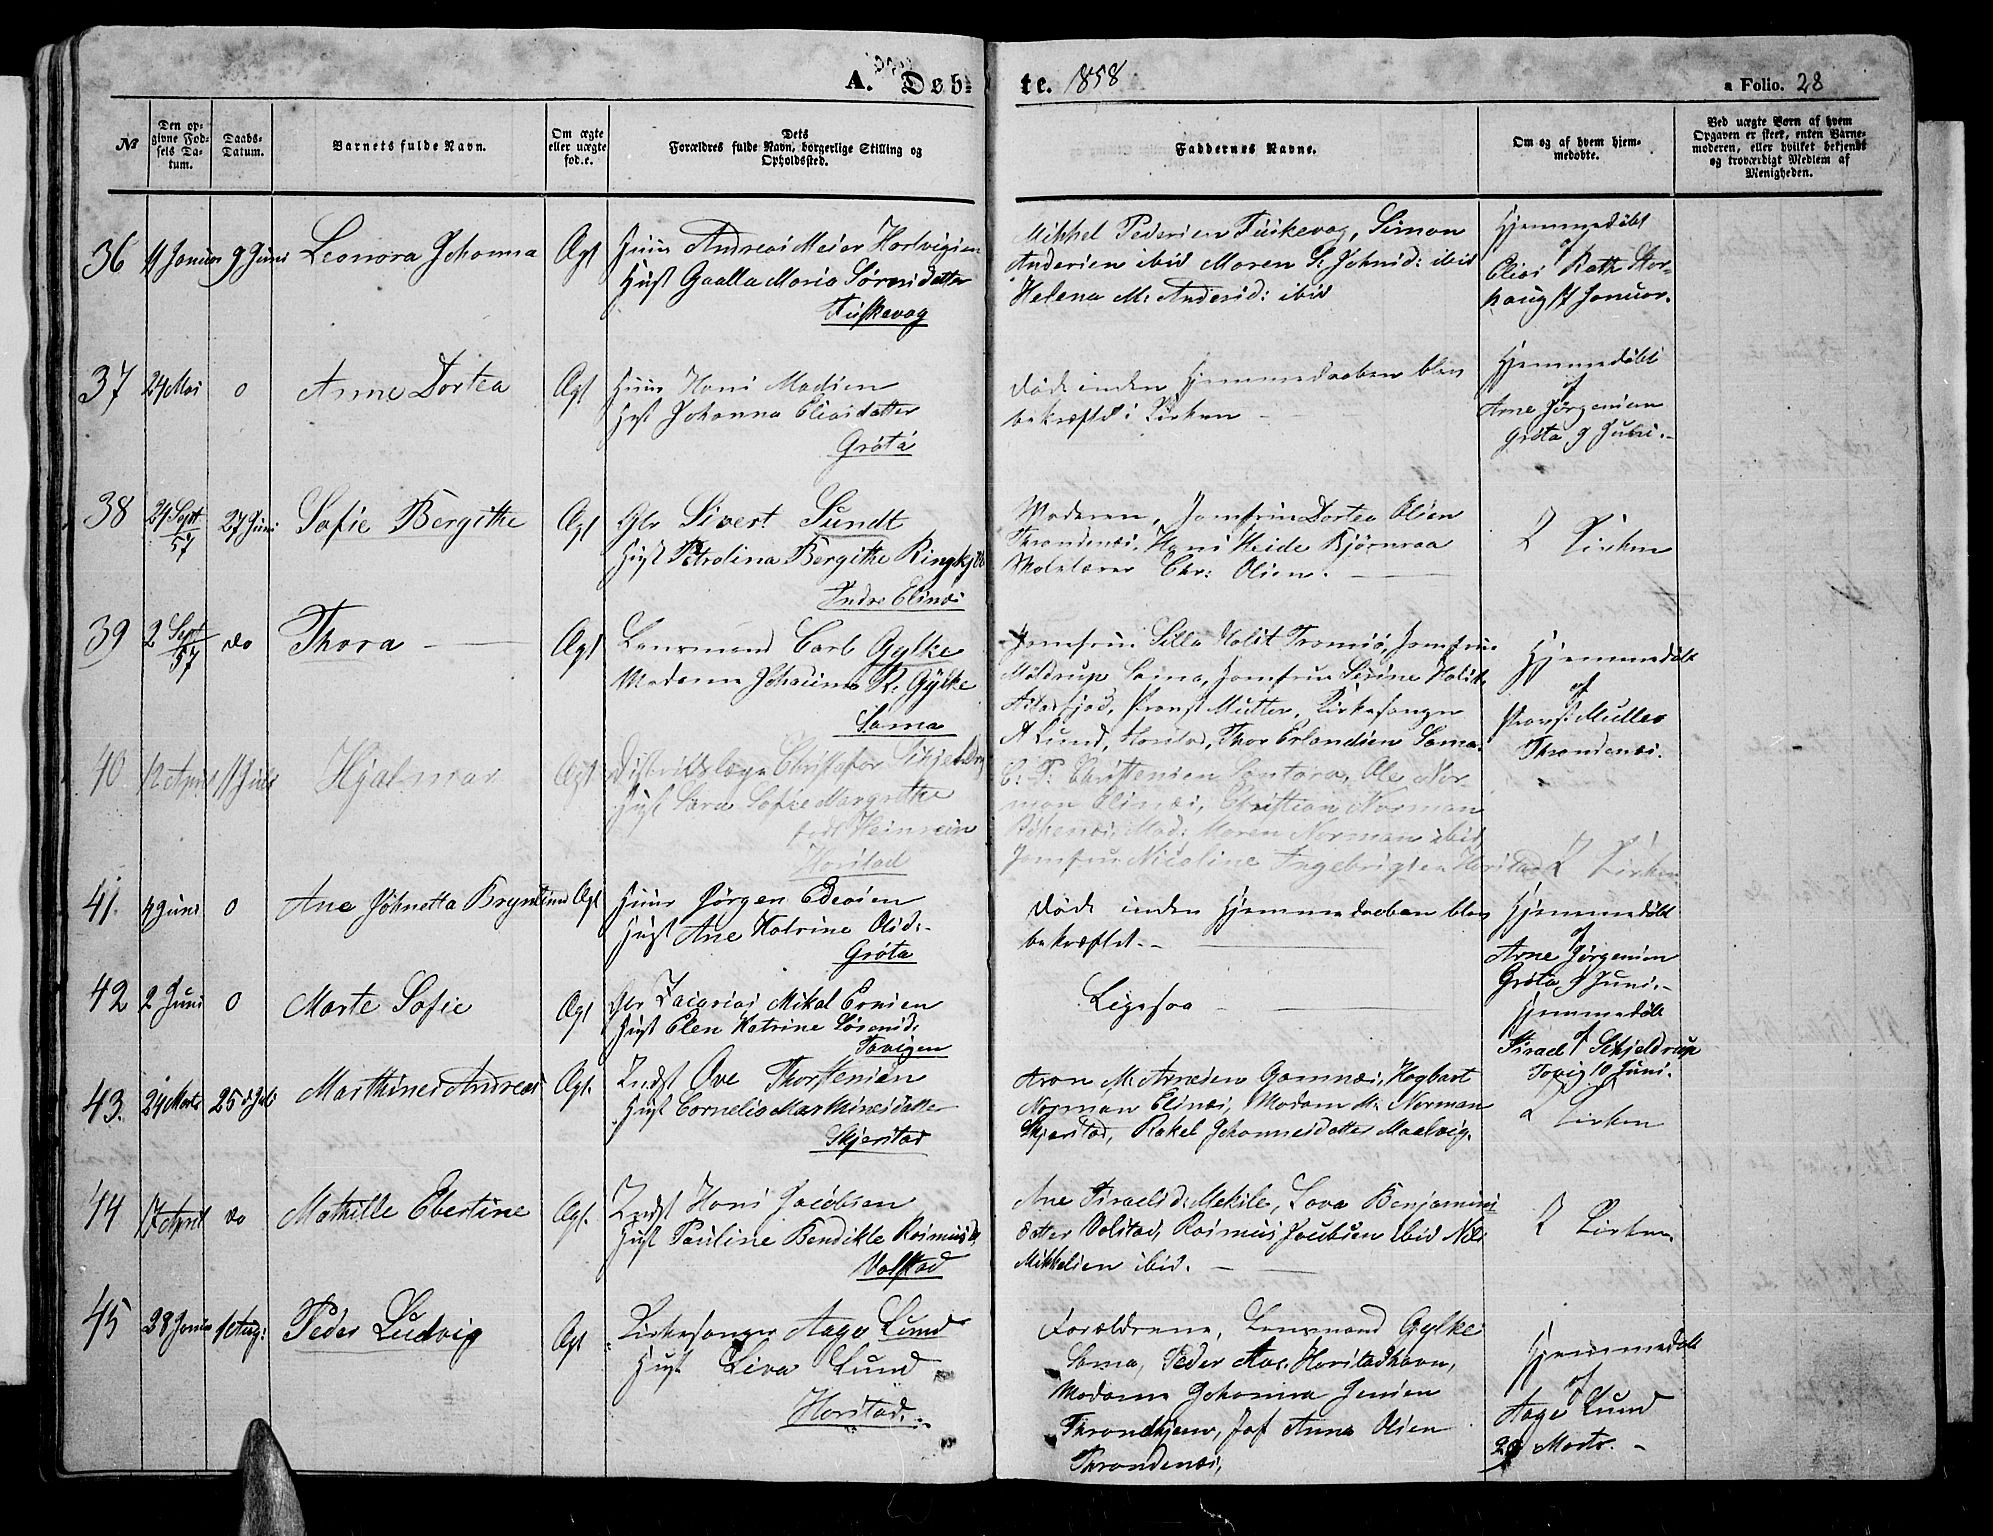 A. Døb-
te. 1858
a Folio. 28
№
Den op-
givne Fød-
sels Da-
tum.
Daabs-
Datum.
Barnets fulde Navn.
Om ægte
eller uægte
fød.e.
Dets
Forældres fulde Navn, borgerlige Stilling og
Opholdssted.
Faddernes Navne.
Om og af hvem hjem-
medøbte.
Ved uægte Børn af hvem
Opgaven er skeet, enten Barne-
moderen, eller hvilket bekjendt
og troværdigt Medlem af
Menigheden.
36 Januar 9 Juni Leonora Johanna Ægt
Andreas Meier Hartvigsen
Maria Sørensdatter
Fiskevog
Mikkel Pedersen Fiskevog, Simon
Andersen ibid Maren S. Johnsd: ibid
Helena M. Andersd: ibid
Hjemmedøbt
af
Elias Rath Stor-
haug 17 Januar.
37 24 Mai 0 Anne Dortea Ægt
Huus Hans Madsen
Hust Johanna Eliasdatter
Grøtø
døde inden Hjemmedaaben blev
bekræftet i Kirken
Hjemmedøbt
af
Arne Jørgensen
Grøta 9 Juni.
38 24 Sept 57 27 Juni Sofie Bergithe Ægt
Sivert Sundt
Hust Petrolina Bergithe
Indre Elines
Moderen, Jomfru Dortea Olsen
Throndenæs, Hans Heide Bjørnraa
Chr: Olsen.
I Kirken
39 2 Sept 57 do Thora Ægt
Lensmand Carl Gylke
Madame Johanna R. Gylke
Sama
Jomfru Silla Holst Tromsø, Jomfru
Sama, Jomfru Serine Holst
Provst Müller, Kirkesanger
A Lund, Harstad, Thor Erlandsen Sama.
Hjemmedøbt
af
Provst Müller
Throndenæs.
40 12 April 11 Juli Hjalmar Ægt
Distriktslæge Christofor
Hust Sara Sofie Margrethe
født Heinrein
Harstad
C. P. Christensen Ole Nor-
man Elinæs, Christian Norman
Mad: Maren Norman ibid
Jomfru Nicoline Ingebrigtsen Harstad
I Kirken
41. 4 Juni 0 Ane Johnetta Ægt
Huus Jørgen Edvosen
Hust Ane Katrine Olsd:
Grøta
døde inden Hjemmedaaben blev
bekræftet.
Hjemmedøbt
af
Arne Jørgensen
Grøta 9 Juni.
42 2 Juni 0 Marte Sofie Ægt
Zacarias Mikal Ernsen
Hust Elen Katrine Sørensd:
Tovigen
Ligesaa
Hjemmedøbt
af
Israel Schjeldrup
Tovig 10 Juni.
43. 24 Marts 25 Juli Marthines Andreas Ægt.
Indst Ove Thorstensen
Hust Cornelia Marthinesdatter
Skjerstad
Aron M. Arnesen Gamnæs, Hagbart
Norman Elinæs, Madam M. Norman
Skjerstad, Rakel Johannesdatter Maelvig.
I Kirken
44 17 April do Mathille Ebertine Ægt.
Indst Hans Jacobsen
Hust Pauline Bendikte Rasmusd:
Volstad
Ane Israelsd: Mekile, Lova Benjamins
datter Volstad, Rasmus Jacobsen ibid Nils
Mikkelsen ibid.
I Kirken.
45 28 1 Aug: Peder Ludvig Ægt
Kirkesanger Aage Lund
Hust Liva Lund
Harstad.
Forældrene, Lensmand Gylke
Sama, Peder Aas, Harstadhavn,
Madame Johanna Jensen
Throndhjem, Jof Anna Olsen
Throndenæs,
Hjemmedøbt
af
Aage Lund
29 Marts.